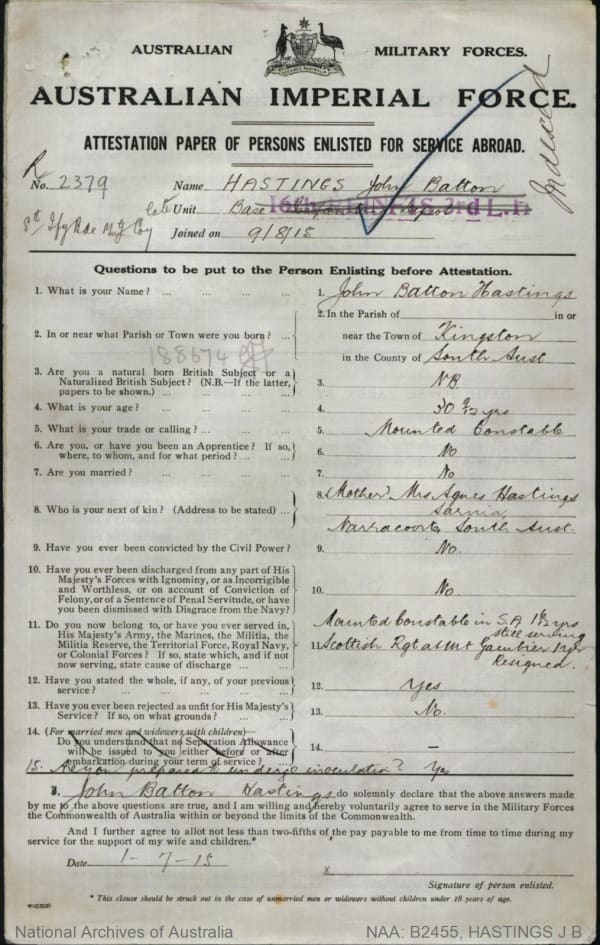 AUSTRALIAN MILITARY FORCES.
AUSTRALIAN IMPERIAL FORCE.
ATTESTATION PAPER OF PERSONS ENLISTED FOR SERVICE ABROAD.
No. 2379 Name HASTINGS John Batton
Unit Base Depot
Joined on 9/8/15
Questions to be put to the Person Enlisting before Attestation.
1. What is your Name? ... 1. John Batton Hastings
2. In or near what Parish or Town were you born? ... 2. In the Parish of in or
near the Town of Kingston
in the County of South Aust
188674
3. Are you a natural born British Subject or a
Naturalized British Subject? (N.B.—If the latter,
papers to be shown.) ... 3. NB
4. What is your age? ... 4. 30 yrs
5. What is your trade or calling? ... 5. Mounted Constable
6. Are you, or have you been an Apprentice? If so,
where, to whom, and for what period? ... 6. No
7. Are you married? ... 7. No
8. Who is your next of kin? (Address to be stated) ... 8. (Mother) Mrs. Agnes Hastings
Sarnia
Narracoorte, South Aust.
9. Have you ever been convicted by the Civil Power? 9. No.
10. Have you ever been discharged from any part of His
Majesty's Forces with Ignominy, or as Incorrigible
and Worthless, or on account of Conviction of
Felony, or of a Sentence of Penal Servitude, or have
you been dismissed with Disgrace from the Navy? 10. No
11. Do you now belong to, or have you ever served in,
His Majesty's Army, the Marines, the Militia, the
Militia Reserve, the Territorial Force, Royal Navy,
or Colonial Forces? If so, state which, and if not
now serving, state cause of discharge ...
Mounted Constable in S.A. yrs
still serving
11. Scottish Rgt at Mt Gambier 1 yr
Resigned.
12. Have you stated the whole, if any, of your previous
service? ... 12. Yes
13. Have you ever been rejected as unfit for His Majesty's
Service? If so, on what grounds? ... 13. No.
14. (For married men and widowers with children)—
Do you understand that no Separation Allowance
will be issued to you either before or after
embarkation during your term of service? ... 14. —
15. Are you prepared to undergo inoculation? Yes
I, John Batton Hastings do solemnly declare that the above answers made
by me to the above questions are true, and I am willing and hereby voluntarily agree to serve in the Military Forces
the Commonwealth of Australia within or beyond the limits of the Commonwealth.
And I further agree to allot not less than two-fifths of the pay payable to me from time to time during my
service for the support of my wife and children.*
Date 1-7-15
x
Signature of person enlisted.
* This clause should be struck out in the case of unmarried men or widowers without children under 18 years of age.
National Archives of Australia NAA: B2455, HASTINGS J B